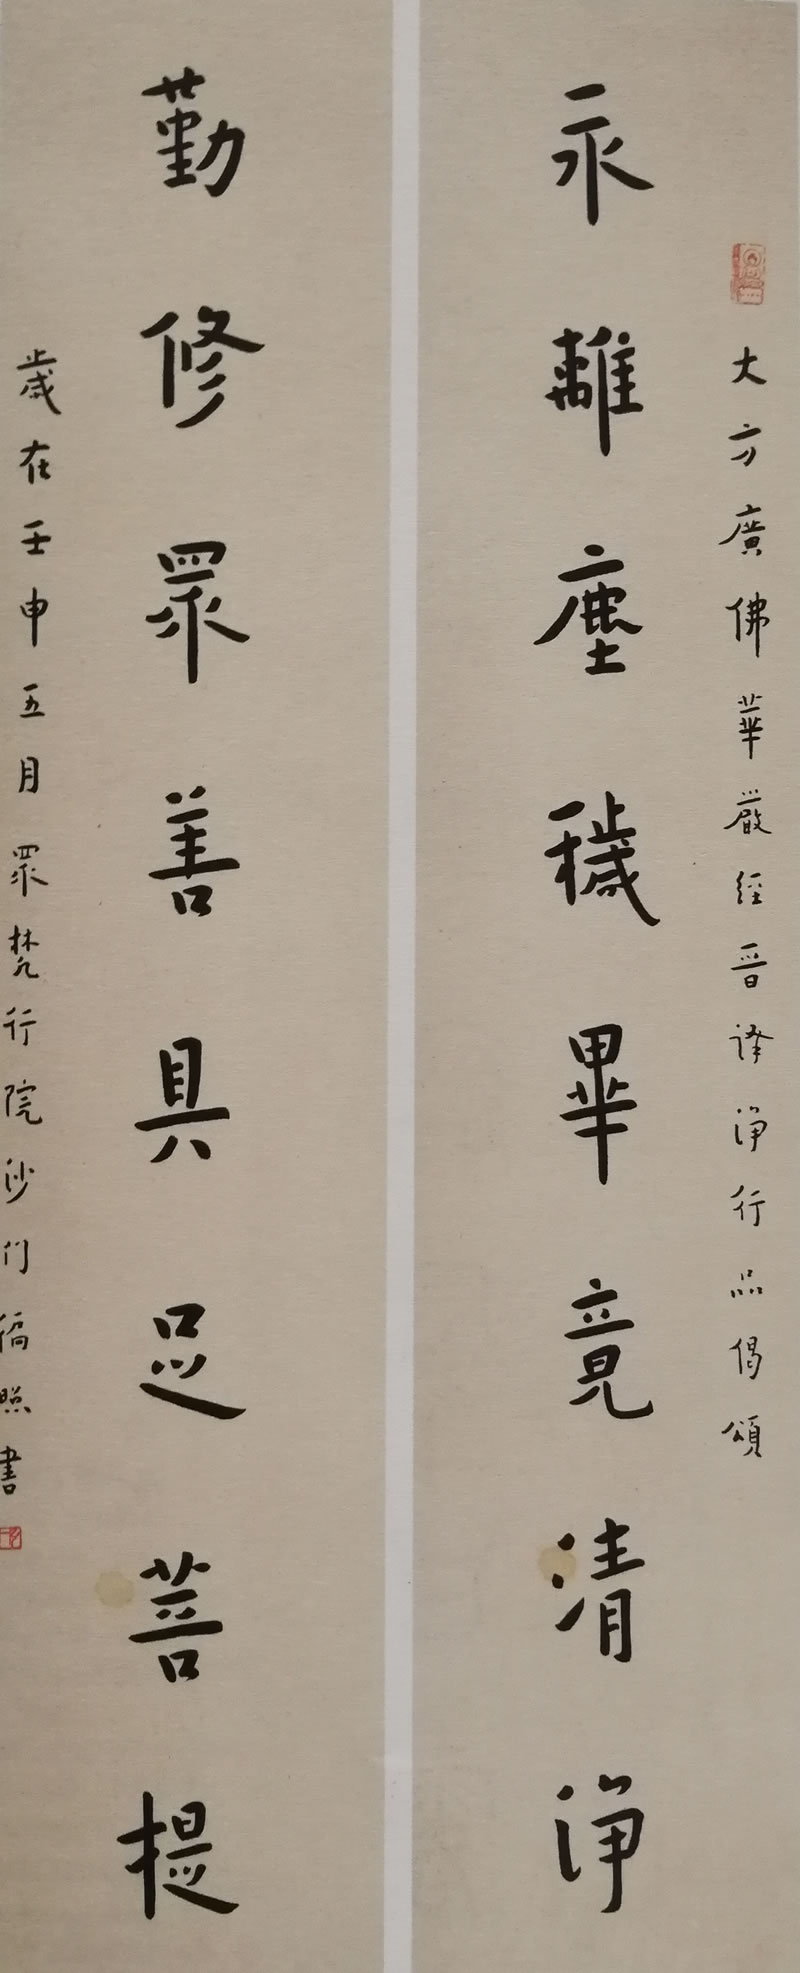 大方廣佛華嚴經晉譯淨行品偈頌
永離塵穢畢竟清淨
勤修眾善具足菩提
歲在壬申五月眾梵行院沙門僧照書